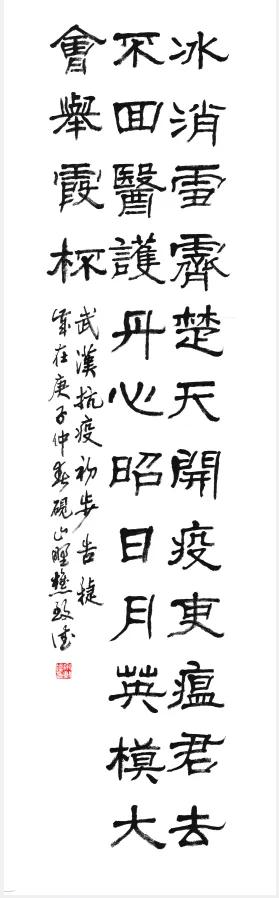 冰消雪霽楚天開疫吏瘟君去
不回醫護丹心昭日月英模大
會舉霞杯
武漢抗疫初步告捷
歲在庚子仲春硯山野樵